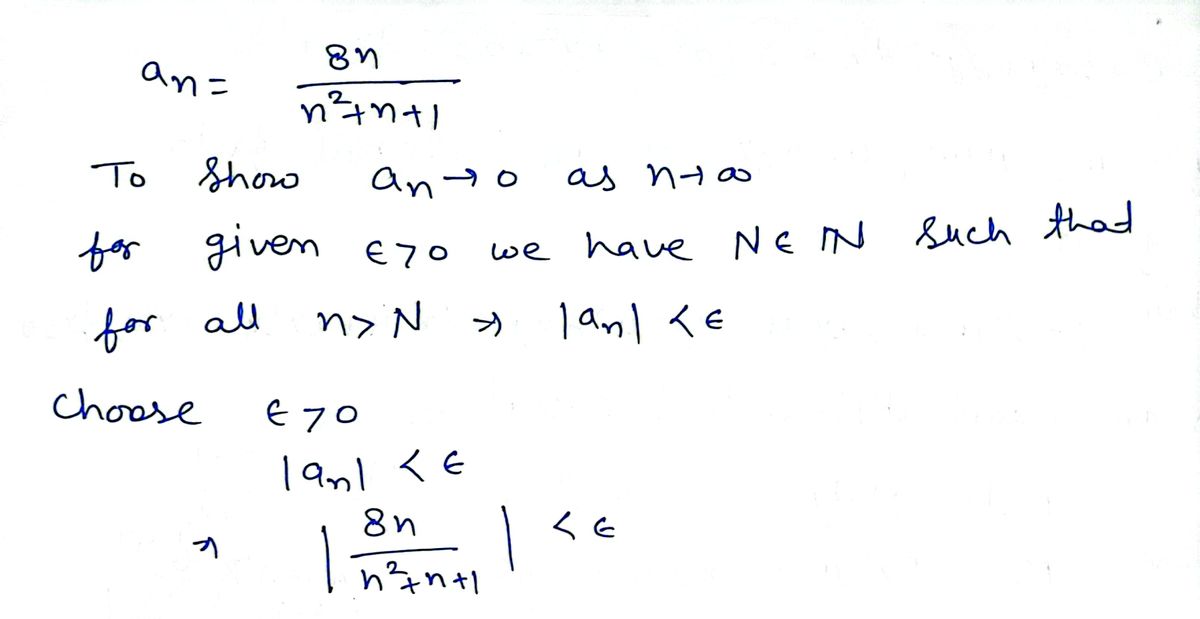 aₙ = 8n / (n²+n+1)
To show aₙ → 0 as n → ∞
for given ϵ > 0 we have N ∈ ℕ such that
for all n > N ⇒ |aₙ| < ϵ
Choose ϵ > 0
|aₙ| < ϵ
⇒ |8n / (n²+n+1)| < ϵ